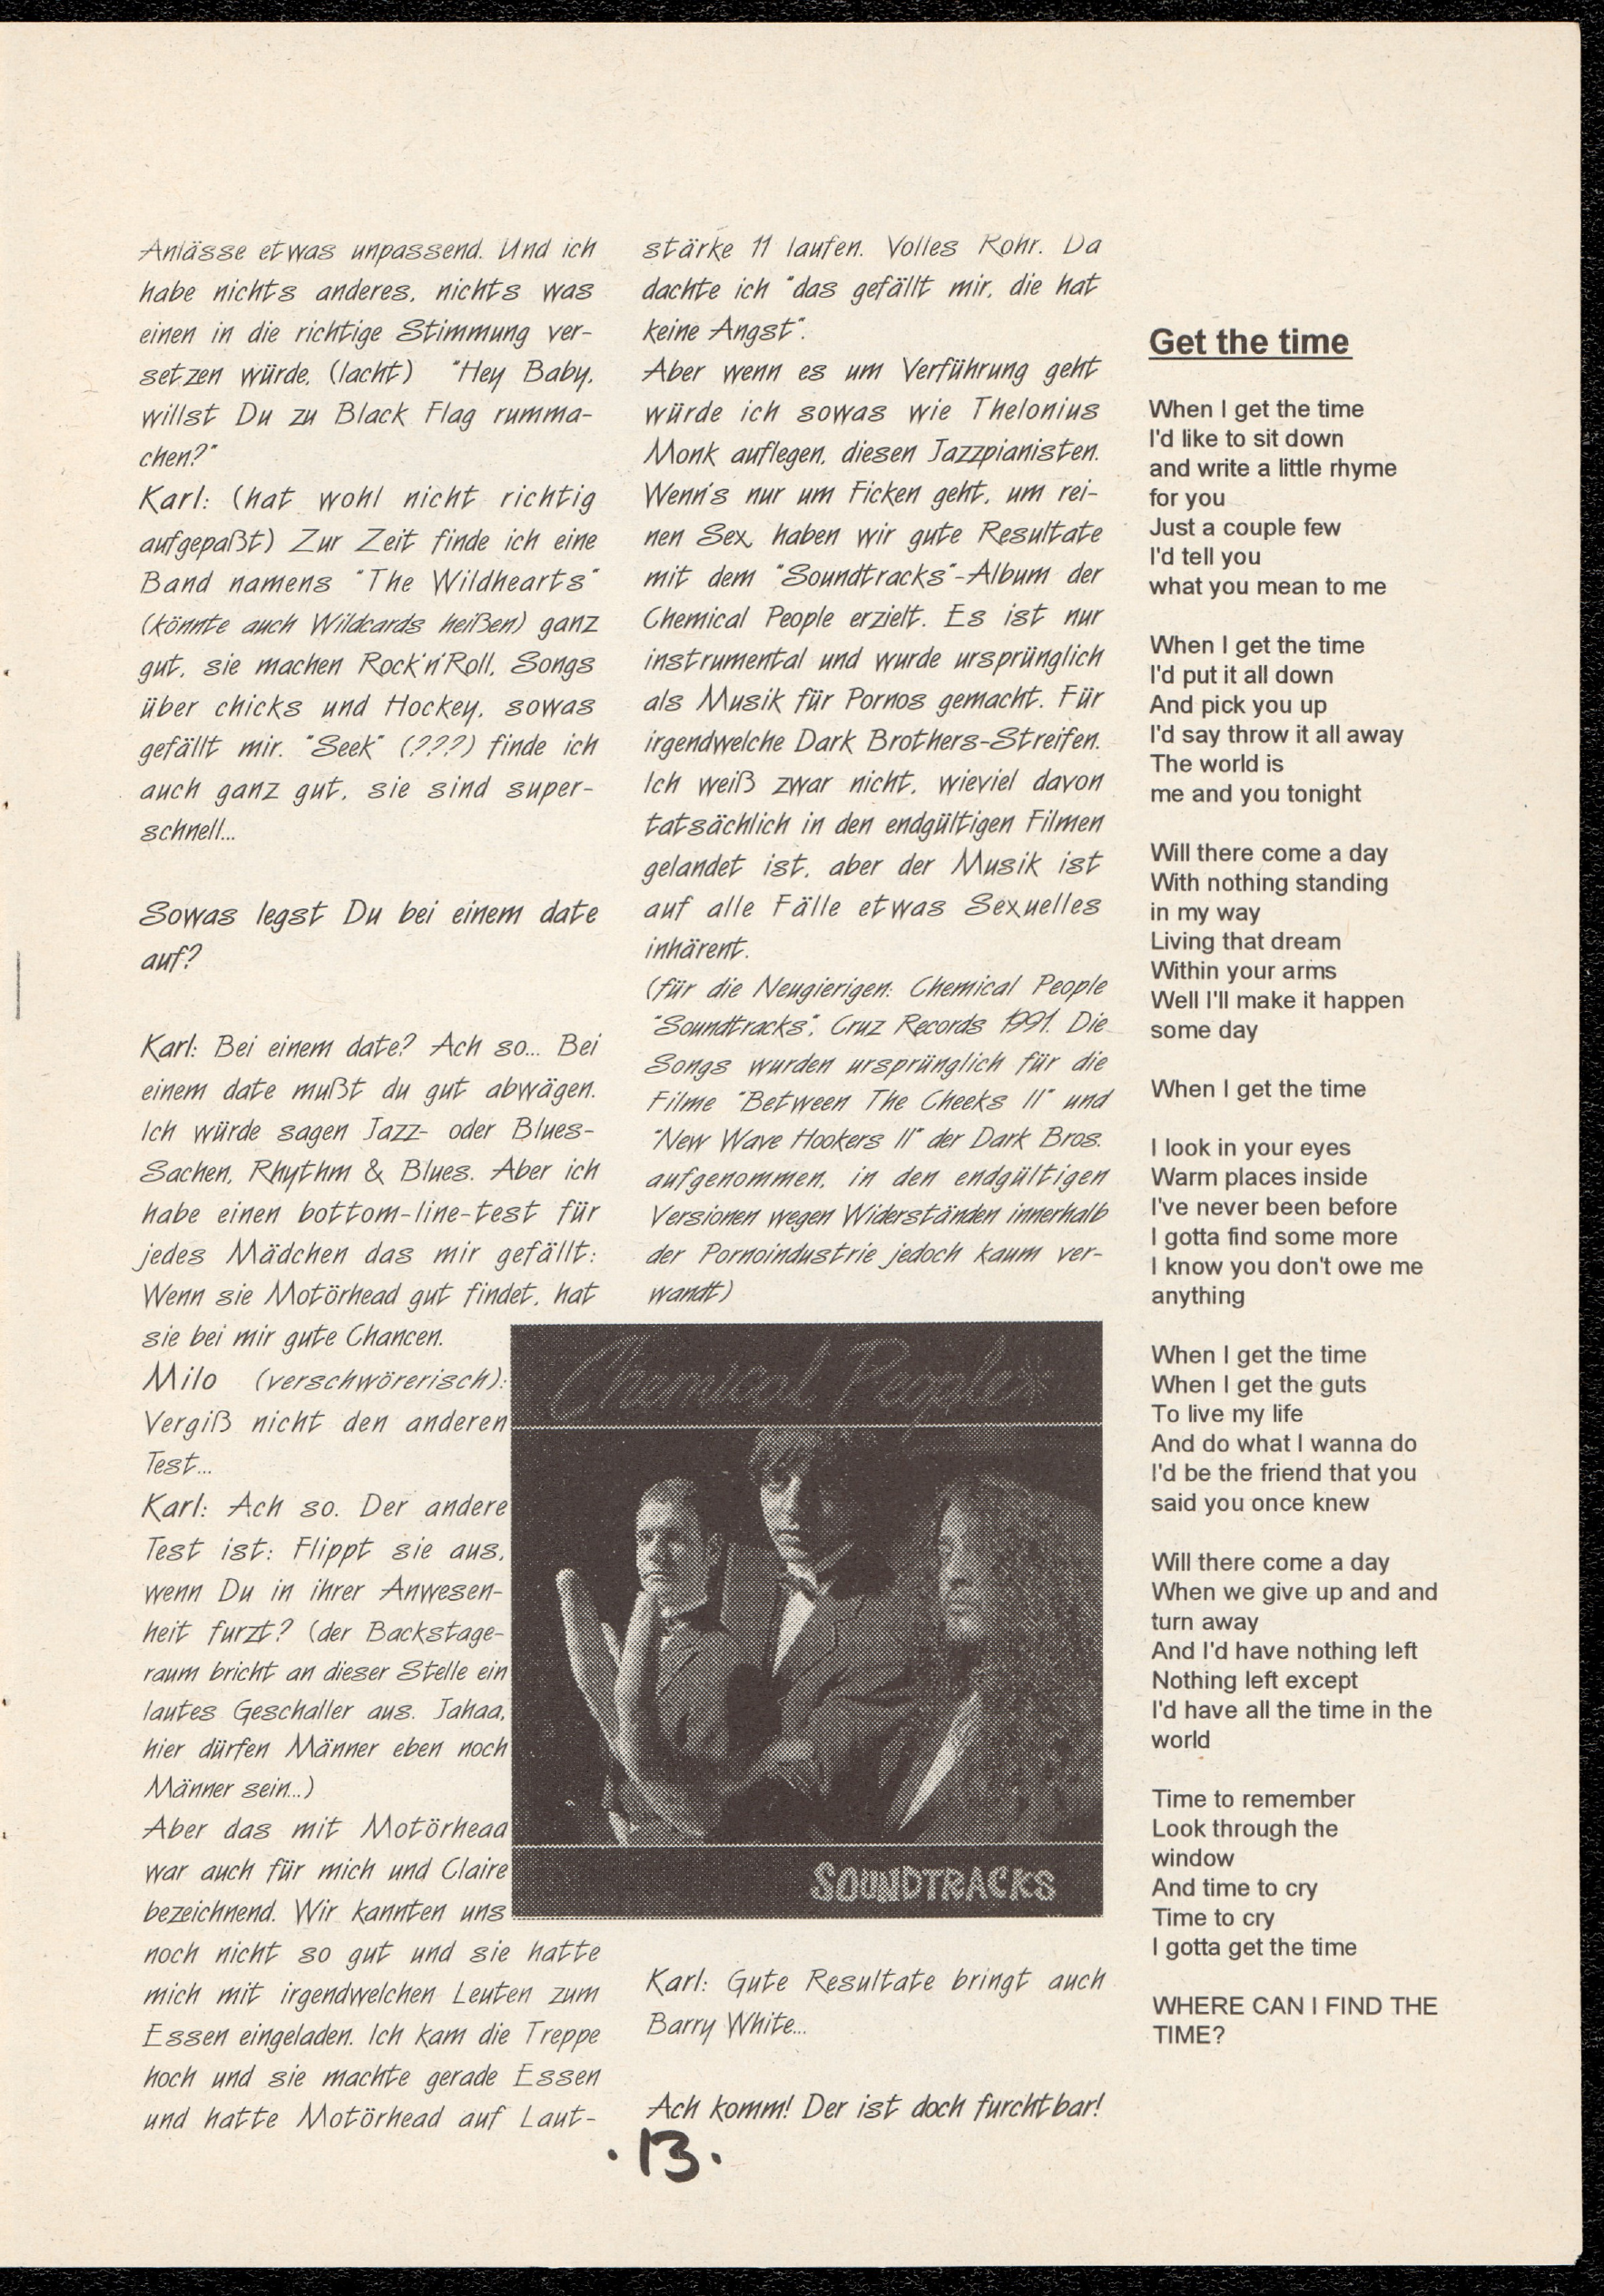 Anlässe etwas unpassend. Und ich
habe nichts anderes, nichts was
einen in die richtige Stimmung ver-
setzen würde, (lacht) "Hey Baby,
willst Du zu Black Flag rumma-
chen?"
Karl: (hat wohl nicht richtig
aufgepaßt) Zur Zeit finde ich eine
Band namens "The Wildhearts"
(könnte auch Wildcards heißen) ganz
gut, sie machen Rock'n'Roll, Songs
über chicks und Hockey, sowas
gefällt mir. "Seek" (???) finde ich
auch ganz gut, sie sind super-
schnell...
Sowas legst Du bei einem date
auf?
Karl: Bei einem date? Ach so... Bei
einem date mußt du gut abwägen.
Ich würde sagen Jazz- oder Blues-
Sachen, Rhythm & Blues. Aber ich
habe einen bottom-line-test für
jedes Mädchen das mir gefällt:
Wenn sie Motörhead gut findet, hat
sie bei mir gute Chancen.
Milo (verschwörerisch):
Vergiß nicht den anderen
Test...
Karl: Ach so. Der andere
Test ist: Flippt sie aus,
wenn Du in ihrer Anwesen-
heit furzt? (der Backstage-
raum bricht an dieser Stelle ein
lautes Geschaller aus. Jahaa,
hier dürfen Männer eben noch
Männer sein...)
Aber das mit Motörhead
war auch für mich und Claire
bezeichnend. Wir kannten uns
noch nicht so gut und sie hatte
mich mit irgendwelchen Leuten zum
Essen eingeladen. Ich kam die Treppe
hoch und sie machte gerade Essen
und hatte Motörhead auf Laut-
stärke 11 laufen. Volles Rohr. Da
dachte ich "das gefällt mir, die hat
keine Angst".
Aber wenn es um Verführung geht
würde ich sowas wie Thelonius
Monk auflegen, diesen Jazzpianisten.
Wenn's nur um Ficken geht, um rei-
nen Sex, haben wir gute Resultate
mit dem "Soundtracks"-Album der
Chemical People erzielt. Es ist nur
instrumental und wurde ursprünglich
als Musik für Pornos gemacht. Für
irgendwelche Dark Brothers-Streifen.
Ich weiß zwar nicht, wieviel davon
tatsächlich in den endgültigen Filmen
gelandet ist, aber der Musik ist
auf alle Fälle etwas Sexuelles
inhärent.
(für die Neugierigen: Chemical People
"Soundtracks", Cruz Records 1991. Die
Songs wurden ursprünglich für die
Filme "Between The Cheeks II" und
"New Wave Hookers II" der Dark Bros.
aufgenommen, in den endgültigen
Versionen wegen Widerständen innerhalb
der Pornoindustrie jedoch kaum ver-
wandt)
Chemical People
SOUNDTRACKS
Karl: Gute Resultate bringt auch
Barry White...
Ach komm! Der ist doch furchtbar!
Get the time
When I get the time
I'd like to sit down
and write a little rhyme
for you
Just a couple few
I'd tell you
what you mean to me
When I get the time
I'd put it all down
And pick you up
I'd say throw it all away
The world is
me and you tonight
Will there come a day
With nothing standing
in my way
Living that dream
Within your arms
Well I'll make it happen
some day
When I get the time
I look in your eyes
Warm places inside
I've never been before
I gotta find some more
I know you don't owe me
anything
When I get the time
When I get the guts
To live my life
And do what I wanna do
I'd be the friend that you
said you once knew
Will there come a day
When we give up and and
turn away
And I'd have nothing left
Nothing left except
I'd have all the time in the
world
Time to remember
Look through the
window
And time to cry
Time to cry
I gotta get the time
WHERE CAN I FIND THE
TIME?
·13·